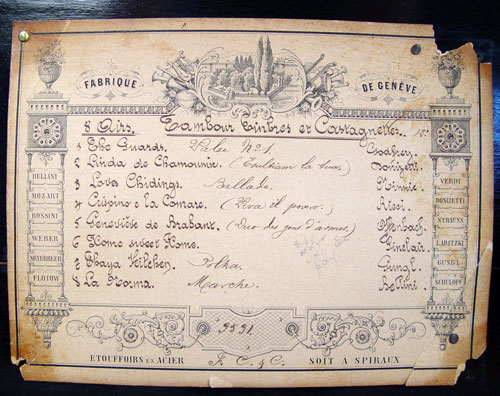 FABRIQUE DE GENÈVE
8 Airs. Tambour Timbres et Castagnettes.
1 The Guards. Valse Nº 1. Godfrey
2 Linda de Chamounix. Donizetti
3 Love Chidings. Ballade. Minnie.
4 Crispino e la Comare. Ricci.
5 Geneviève de Brabant. (Duo des gens d'armes) Offenbach
6 Home sweet Home. Sinclair.
7 Polka. Gungl.
8 La Norma. Marche. Bellini
BELLINI
MOZART
ROSSINI
WEBER
MEYERBEER
FLOTOW
VERDI
DONIZETTI
STRAUSS
LABITZKI
GUNG'L
SCHULOFF
9531.
ETOUFFOIRS EN ACIER F. C. & C. SOIT A SPIRAUX